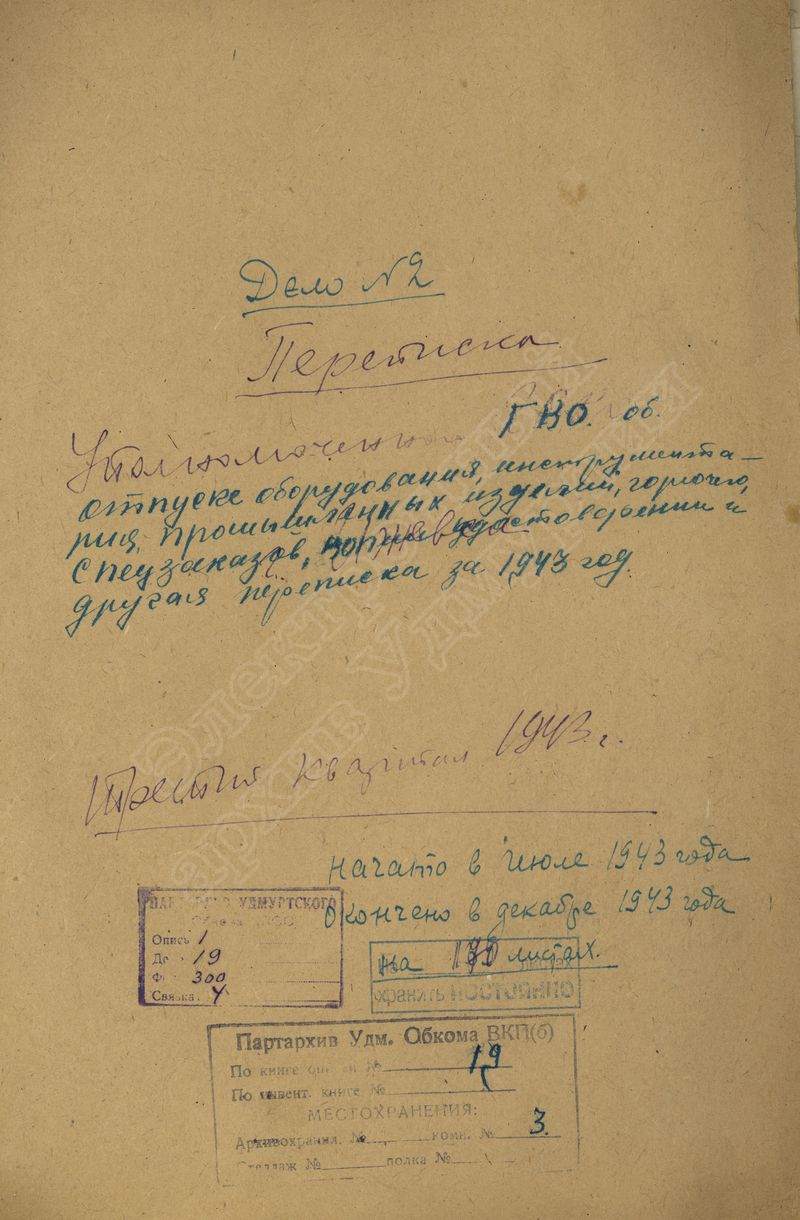 Дело №2
Переписка
Уполномоченный ГВО. об.
отпуске оборудования, инструмента-
рия, промышланных изделий, горючего,
спецзаказов, удостоверений и
другая переписка за 1943 год.
третий квартал 1943 г.
Начато в июле 1943 года
Окончено в декабре 1943 года
на листах.
хранить ПОСТОЯННО
УДМУРТСКОГО
Опись 1
Дело 19
Ф. 300
Связка
Партархив Удм. Обкома ВКП(б)
По книге № 19
По инвент. книге №
МЕСТОХРАНЕНИЯ:
Архивохранил. № комн. № 3.
Стеллаж № полка №
Электронный
архив Удмуртии